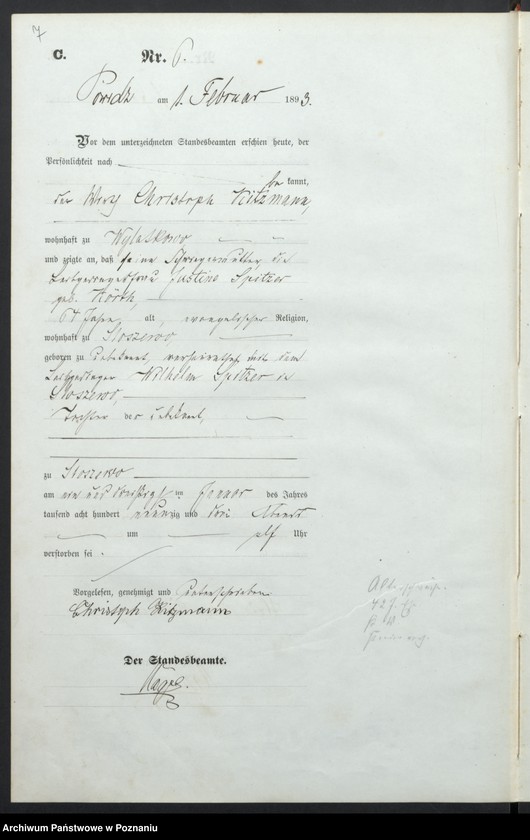 7
C. Nr. 6.
Powidz am 1. Februar 1893.
Vor dem unterzeichneten Standesbeamten erschien heute, der
Persönlichkeit nach
be kannt,
der Wirth Christoph Kitzmann,
wohnhaft zu Wylatkowo
und zeigte an, daß seine Schwiegermutter, die
Leibgedingerfrau Justine Spitzer
geb. Korth,
64 Jahre alt, evangelischer Religion,
wohnhaft zu Sloszewo,
geboren zu unbekannt, verheirathet mit dem
Leibgedinger Wilhelm Spitzer in
Sloszewo,
Tochter der unbekannt,
zu Sloszewo
am ein und dreißigsten Januar des Jahres
tausend acht hundert neunzig und drei Abends
um elf Uhr
verstorben sei.
Vorgelesen, genehmigt und unterschrieben
Christoph Kitzmann
Der Standesbeamte.
Archiwum Państwowe w Poznaniu